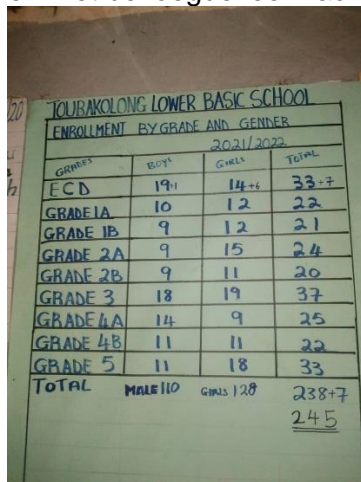 TOUBAKOLONG LOWER BASIC SCHOOL
ENROLLMENT BY GRADE AND GENDER
2021/2022
GRADES BOYS GIRLS TOTAL
ECD 19+1 14+6 33+7
GRADE 1A 10 12 22
GRADE 1B 9 12 21
GRADE 2A 9 15 24
GRADE 2B 9 11 20
GRADE 3 18 19 37
GRADE 4A 14 9 25
GRADE 4B 11 11 22
GRADE 5 11 18 33
TOTAL MALE 110 GIRLS 128 238+7
245